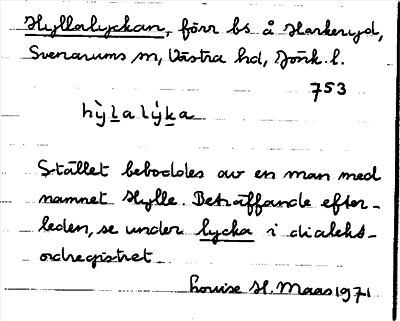 Hyllalyckan, förr bs å Harkeryd,
Svenarums sn, Västra hd, Jönk. l.
753
hỳlalýka
Stället beboddes av en man med
namnet Hylle. Beträffande efter-
leden, se under lycka i dialekt-
ordregistret
Louise H. Maas 1971